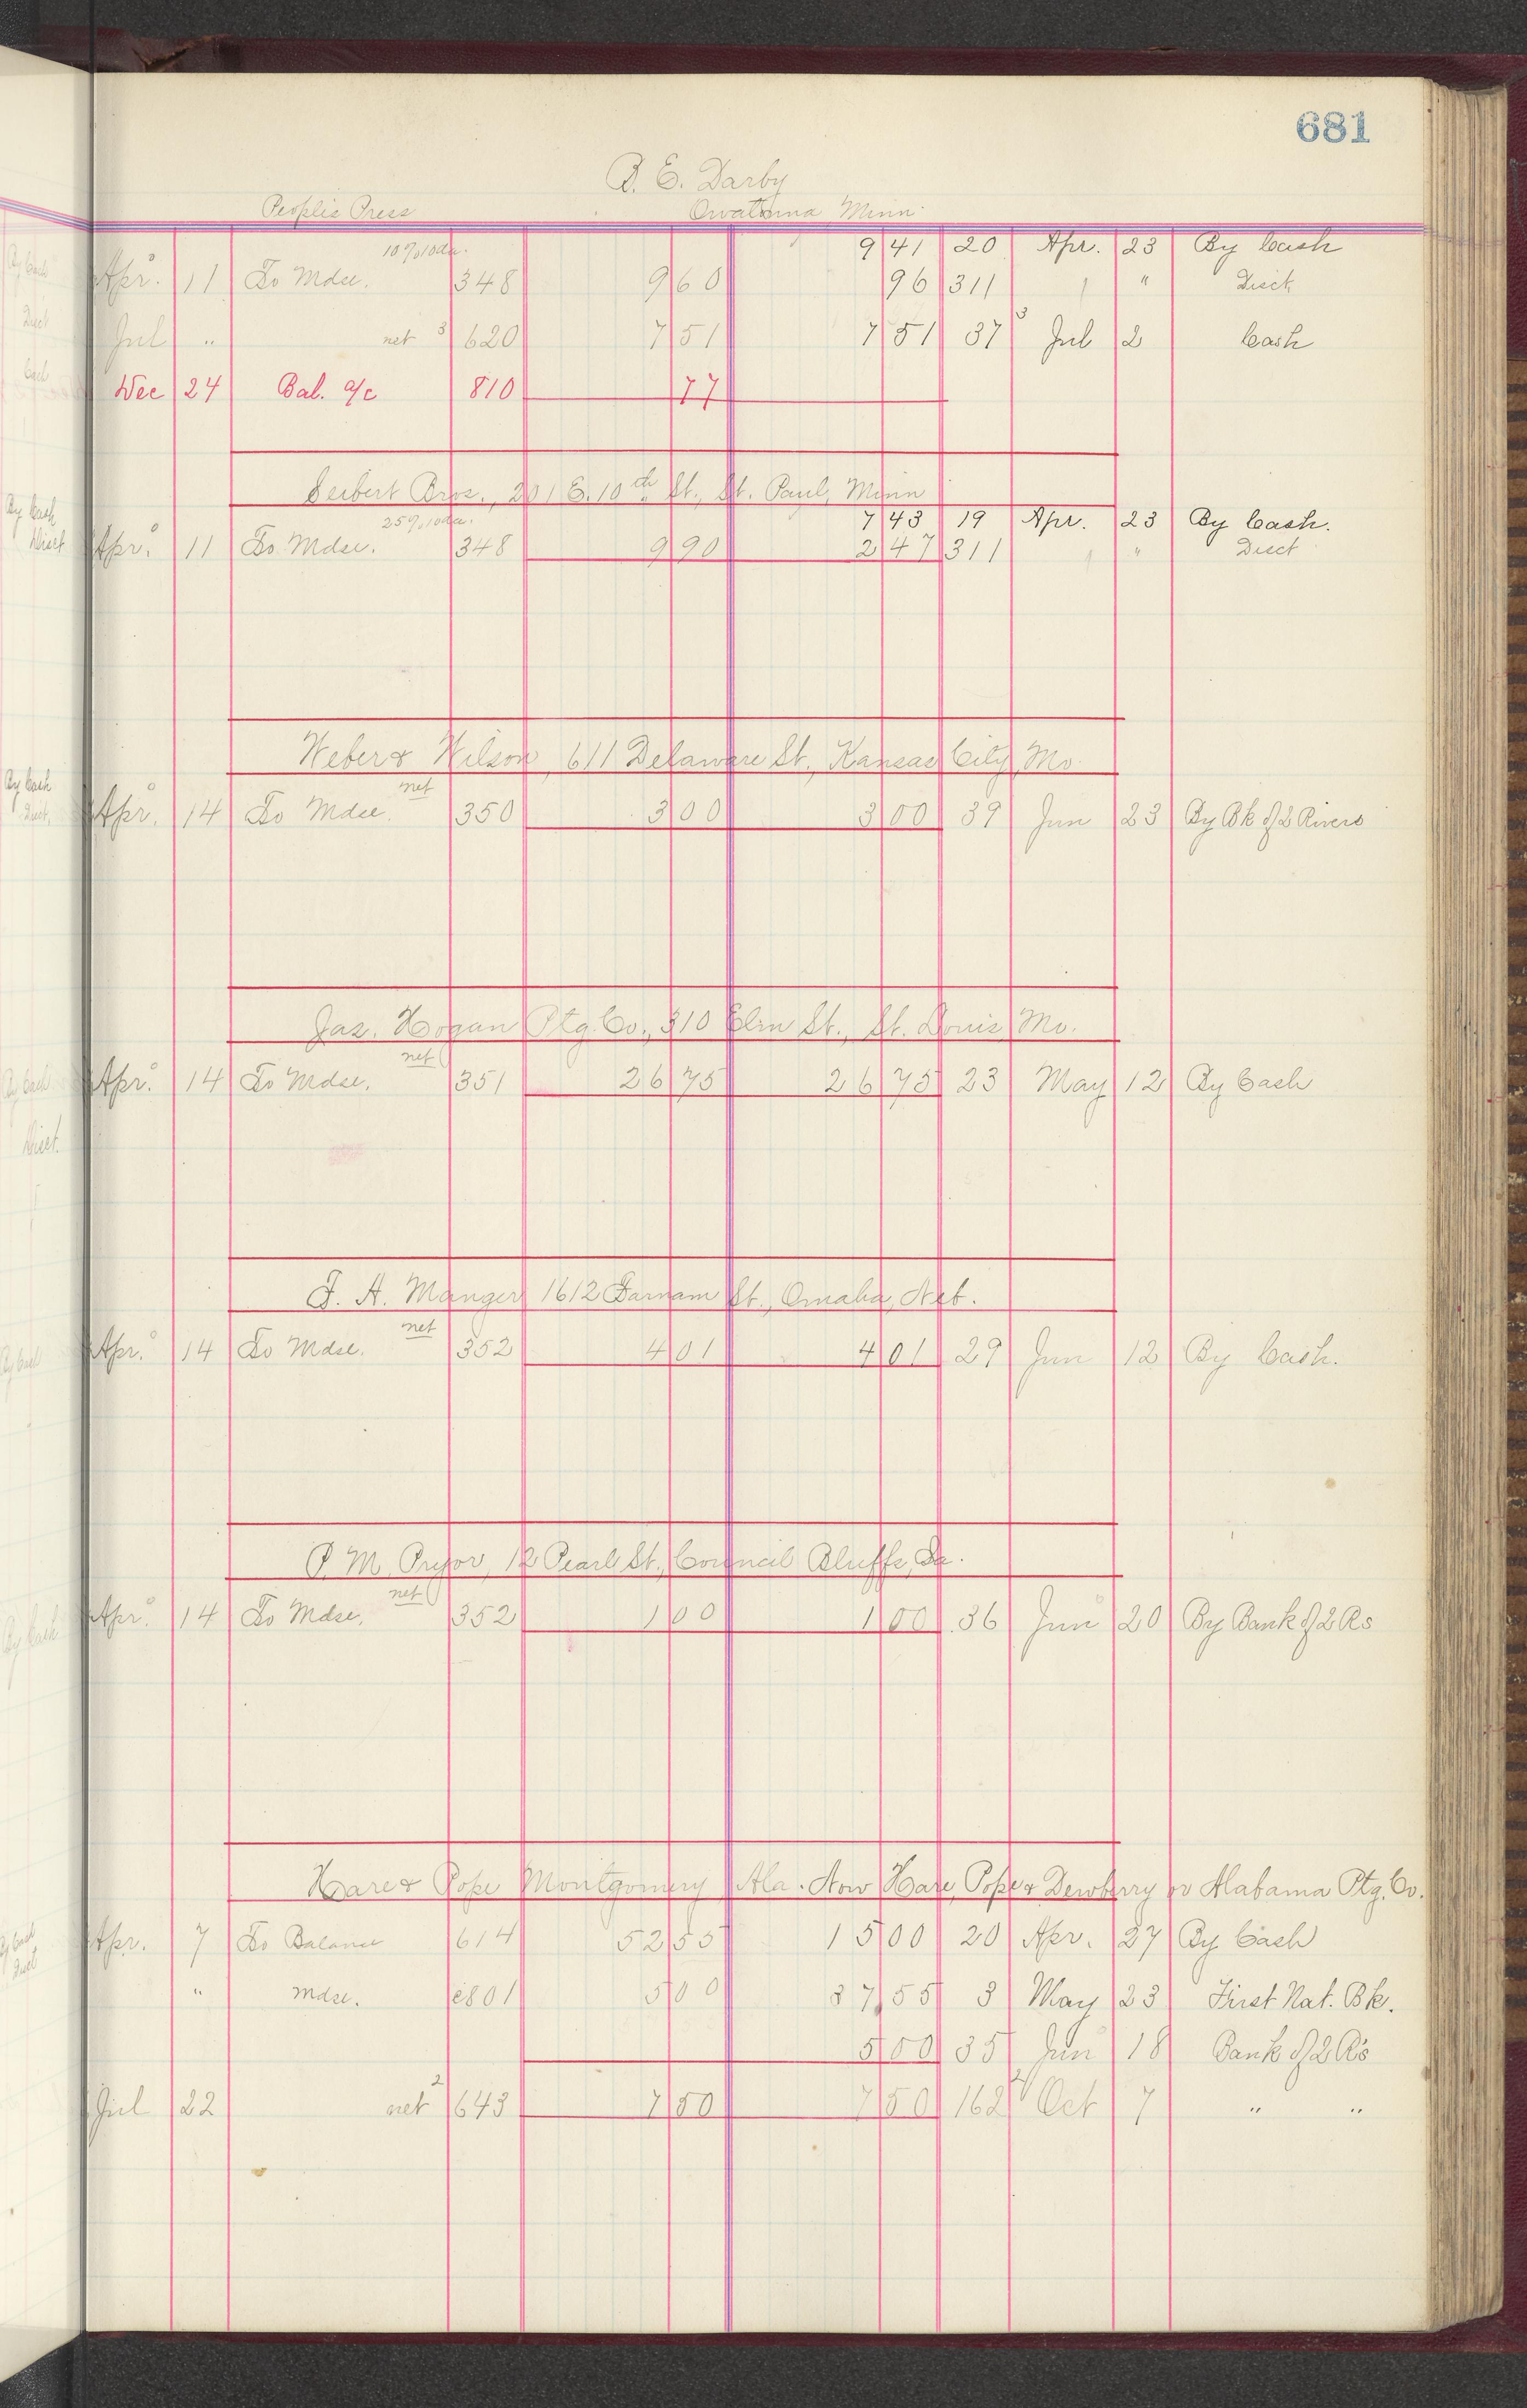 681
B. E. Darby
Peoples Press Owatonna Minn.
10% 10 da. 9 41 20 Apr. 23 By Cash
Apr. 11 To Mdse. 348 9 60 96 311 " Disct
Jul " net 3 620 7 51 7 51 37 3 Jul 2 Cash
Dec 24 Bal. a/c 810 77
Seibert Bros., 201 E. 10th St., St. Paul, Minn
25% 10 da. 7 43 19 Apr. 23 By Cash.
Apr. 11 To Mdse. 348 9 90 2 47 311 " Disct
Weber & Wilson, 611 Delaware St., Kansas City, Mo.
net
Apr. 14 To Mdse. 350 3 00 3 00 39 Jun 23 By Bk of 2 Rivers
Jas. Hogan Ptg. Co., 310 Elm St., St. Louis, Mo.
net
Apr. 14 To Mdse. 351 26 75 26 75 23 May 12 By Cash
F. A. Manger 1612 Farnam St., Omaha, Neb.
net
Apr. 14 To Mdse. 352 4 01 4 01 29 Jun 12 By Cash.
P. M. Pryor, 12 Pearl St., Council Bluffs, Ia.
net
Apr. 14 To Mdse. 352 1 00 1 00 36 Jun 20 By Bank of 2 Rs
Hare & Pope Montgomery Ala. Now Hare, Pope & Dewberry or Alabama Ptg. Co.
Apr. 7 To Balance 614 52 55 15 00 20 Apr. 27 By Cash
" Mdse. e801 5 00 37 55 3 May 23 First Nat. Bk.
5 00 35 Jun 18 Bank of 2 Rs
Jul 22 net 2 643 7 50 7 50 162 2 Oct 7 " "